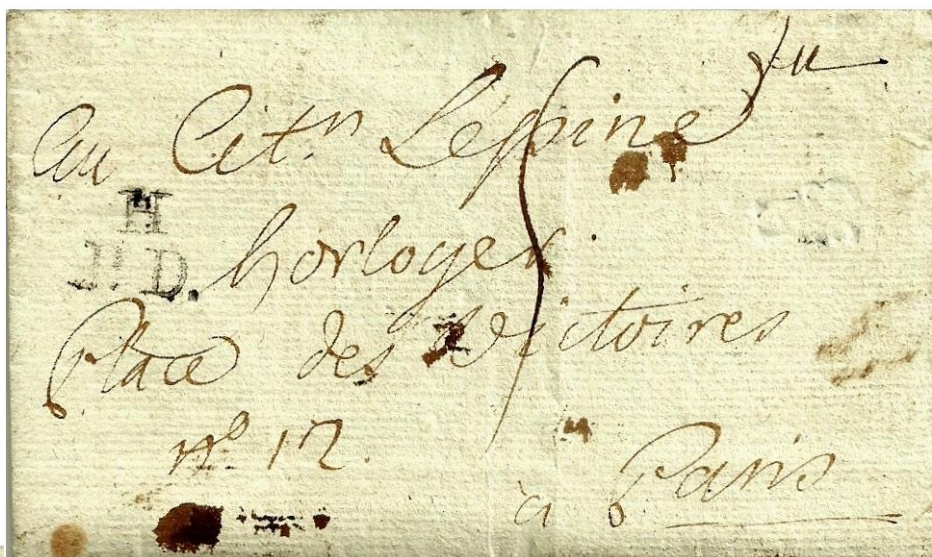 Au Cit.n Lépine
H
J.n D.
horloger
Place des Victoires
n.o 12.
à Paris